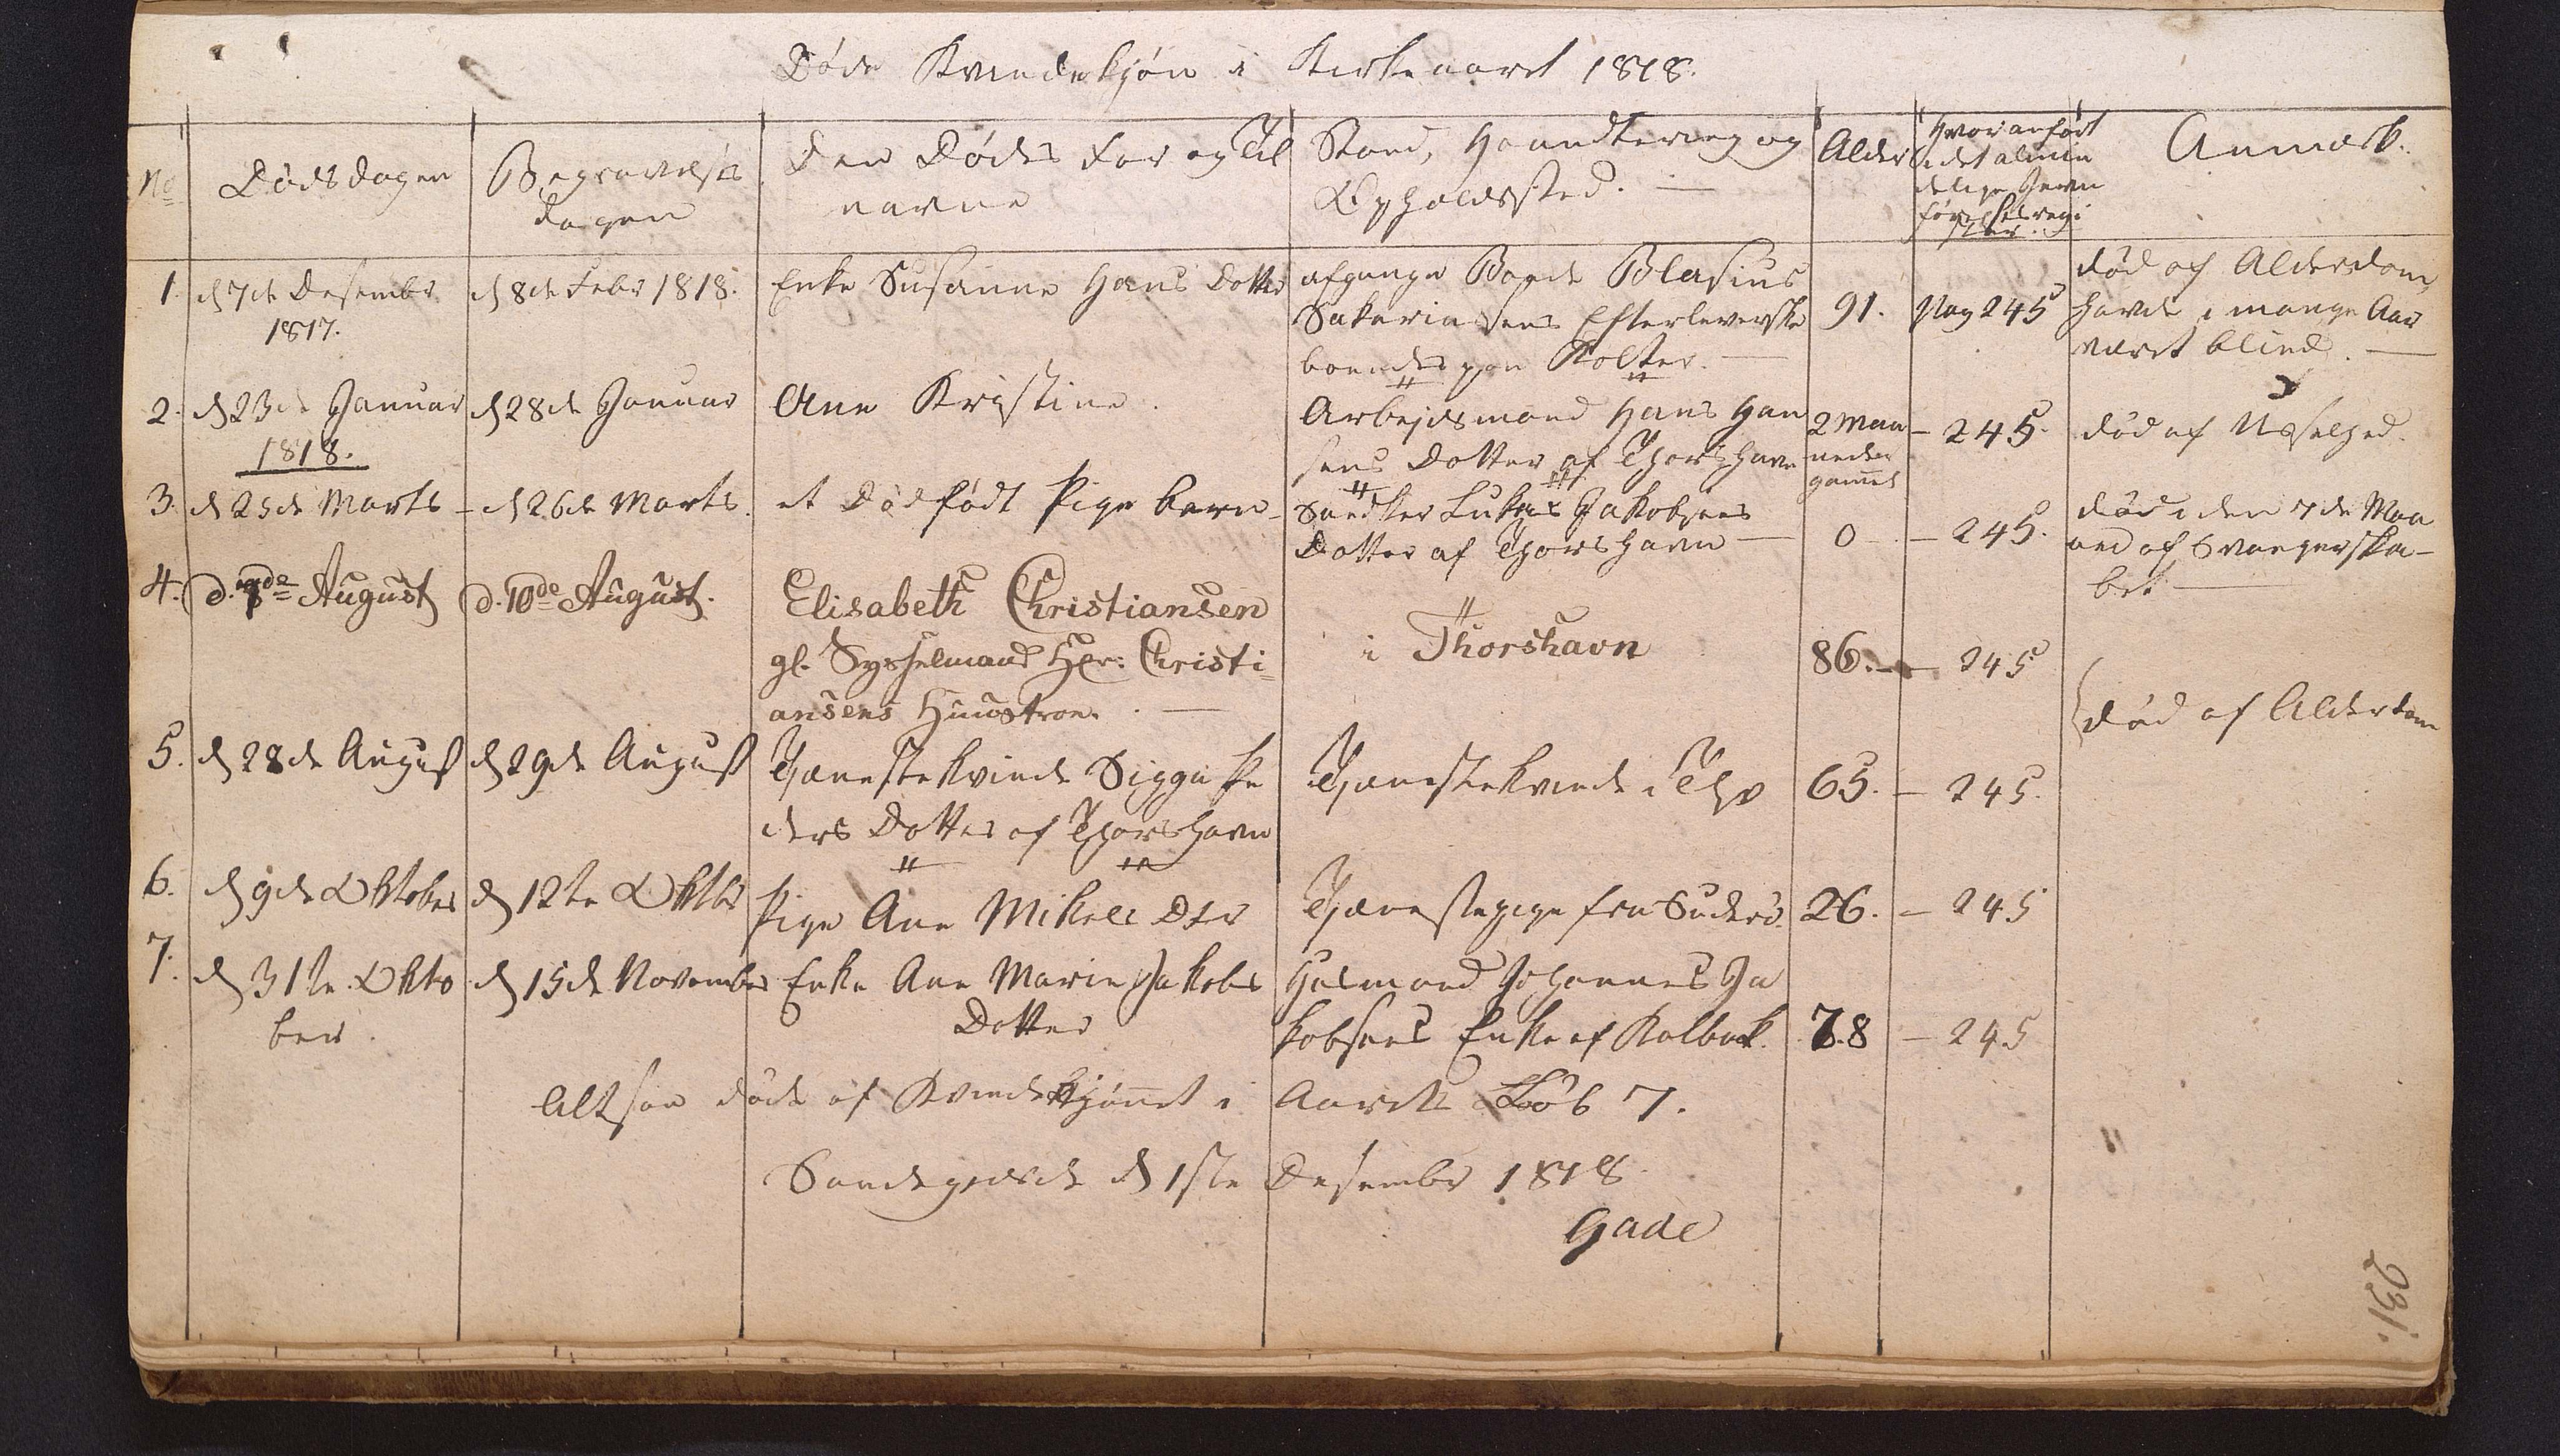 Døde Kvindekjøn i Kirkeaaret 1818.
No
Dødsdagen
Begravelses
dagen
Den Dødes For og Til
navne
Stand, Haandtering og
Opholdssted. —
Alder
Hvor anført
i det almin
delige Jevn
førelsesregi
ster.
Anmærk.
1. d 7de Desembr
1817.
d 8de Febr 1818.
Enke Susanne Hans Dotter
afgangne Bonde Blasius
Sakariasens Efterleverske
boendes paa Kolter. —
91.
Pag 245
død af Alderdom,
havde i mange Aar
været blind. —
2. d 23de Januar
1818.
d 28de Januar
Ane Kristine.
Arbejdsmand Hans Han
sens Dotter af Thorshavn
2 Maa
neder
gammel
— 245.
død af Usselhed.
3. d 25de Marts —
d 26de Marts.
et Dødfødt Pige barn —
Snedker Lukas Jakobsens
Dotter af Thorshavn —
0 —
— 245.
død i den 7de Maa
ned af Svangerska-
bet —
4. d. 9de August
d. 10de August.
Elisabeth Christiansen
gl. Sysselmand Hr: Christi=
ansens Huustroe. —
i Thorshavn
86. —
— 245
død af Alderdom
5. d 28de August
d 29de August
Tjænestekvinde Sigga Pe
ders Dotter af Thorshavn
Tjænestekvinde i Thv
65.
— 245.
6. d 9de Oktober
d 12te Oktbr
Pige Ane Mikels Dtr
Tjænestepige fra Suderö.
26.
— 245
7. d 31te Okto
ber.
d 15de November
Enke Ane Marie Jakobs
Dotter
Husmand Johannes Ja
kobsens Enke af Kolbak.
78
— 245
Altsaa døde af Kvindekjönnet i Aarets Løb 7.
Sandegjerde d 1ste Desembr 1818
Gade
231.